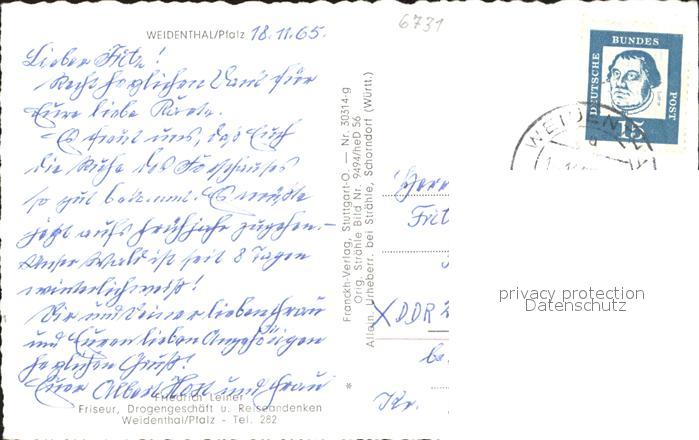 6731
WEIDENTHAL/Pfalz 18.11.65.
Lieber Fritz!
Recht herzlichen Dank für
Eure liebe Karte.
Es freut uns, daß Euch
die Ruhe des Forsthauses
so gut bekommt. Es müßte
jetzt aufs Frühjahr zugehen.-
Unser Wald ist seit 8 Tagen
winterlich weiß!
Dir und Deiner lieben Frau
und Euren lieben Angehörigen
herzlichen Gruß!
Euer Albert Host und Frau
Friedrich Leiner
Friseur, Drogengeschäft u. Reiseandenken
Weidenthal/Pfalz - Tel. 282
Franckh-Verlag, Stuttgart-O. — Nr. 30314-g
Orig. Strähle Bild Nr. 9494/heD 56
Allein. Urheberr. bei Strähle, Schorndorf (Württ.)
DEUTSCHE BUNDES POST
15
WEIDEN
Herrn
Frit
X DDR
be.
Kr.
privacy protection
Datenschutz